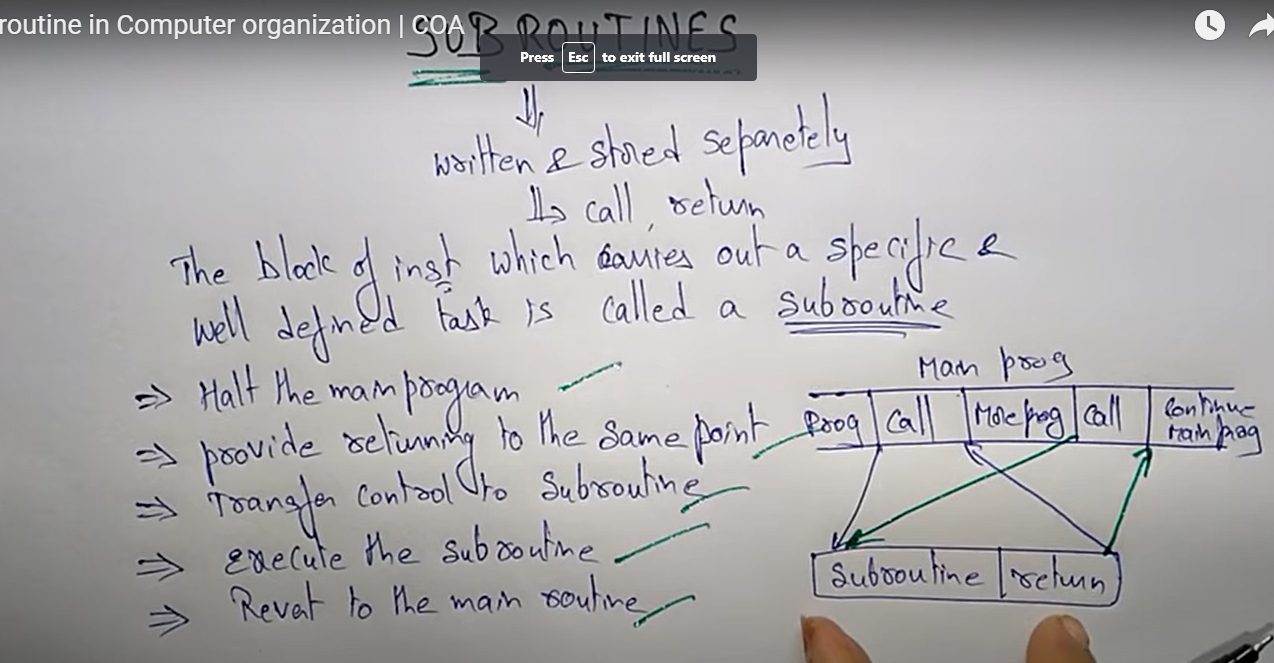 routine in Computer organization | COA
SUBROUTINES
Press Esc to exit full screen
written & stored separetely
call, return
The block of inst which carries out a specific &
well defined task is called a subroutine
Halt the main program
provide returning to the same point
Transfer control to Subroutine
execute the subroutine
Revat to the main routine
Main prog
Prog Call More prog Call Continue
main prog
Subroutine return